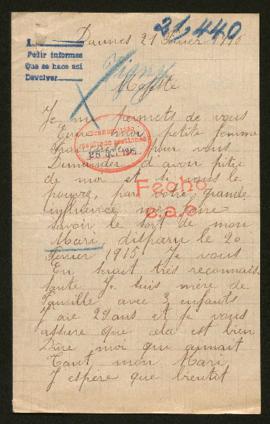 31,440
1
Pedir informes
Que se hace así
Devolver
Vannes 21
Majesté
Je me permets de vous
petite femme
pour vous
Demander d'avoir pitié
de moi et si vous le
pouvez, par votre grande
influance me faire
savoir le sort de mon
Mari disparu le 20
février 1915. Je vous
En serait très reconnais
sante Je suis mère de
famille avec 3 enfants
J'ai 29 ans et je vous
assure que cela est bien
Dure moi qui aimait
Tant mon Mari
J'espère que bientôt
Fecho